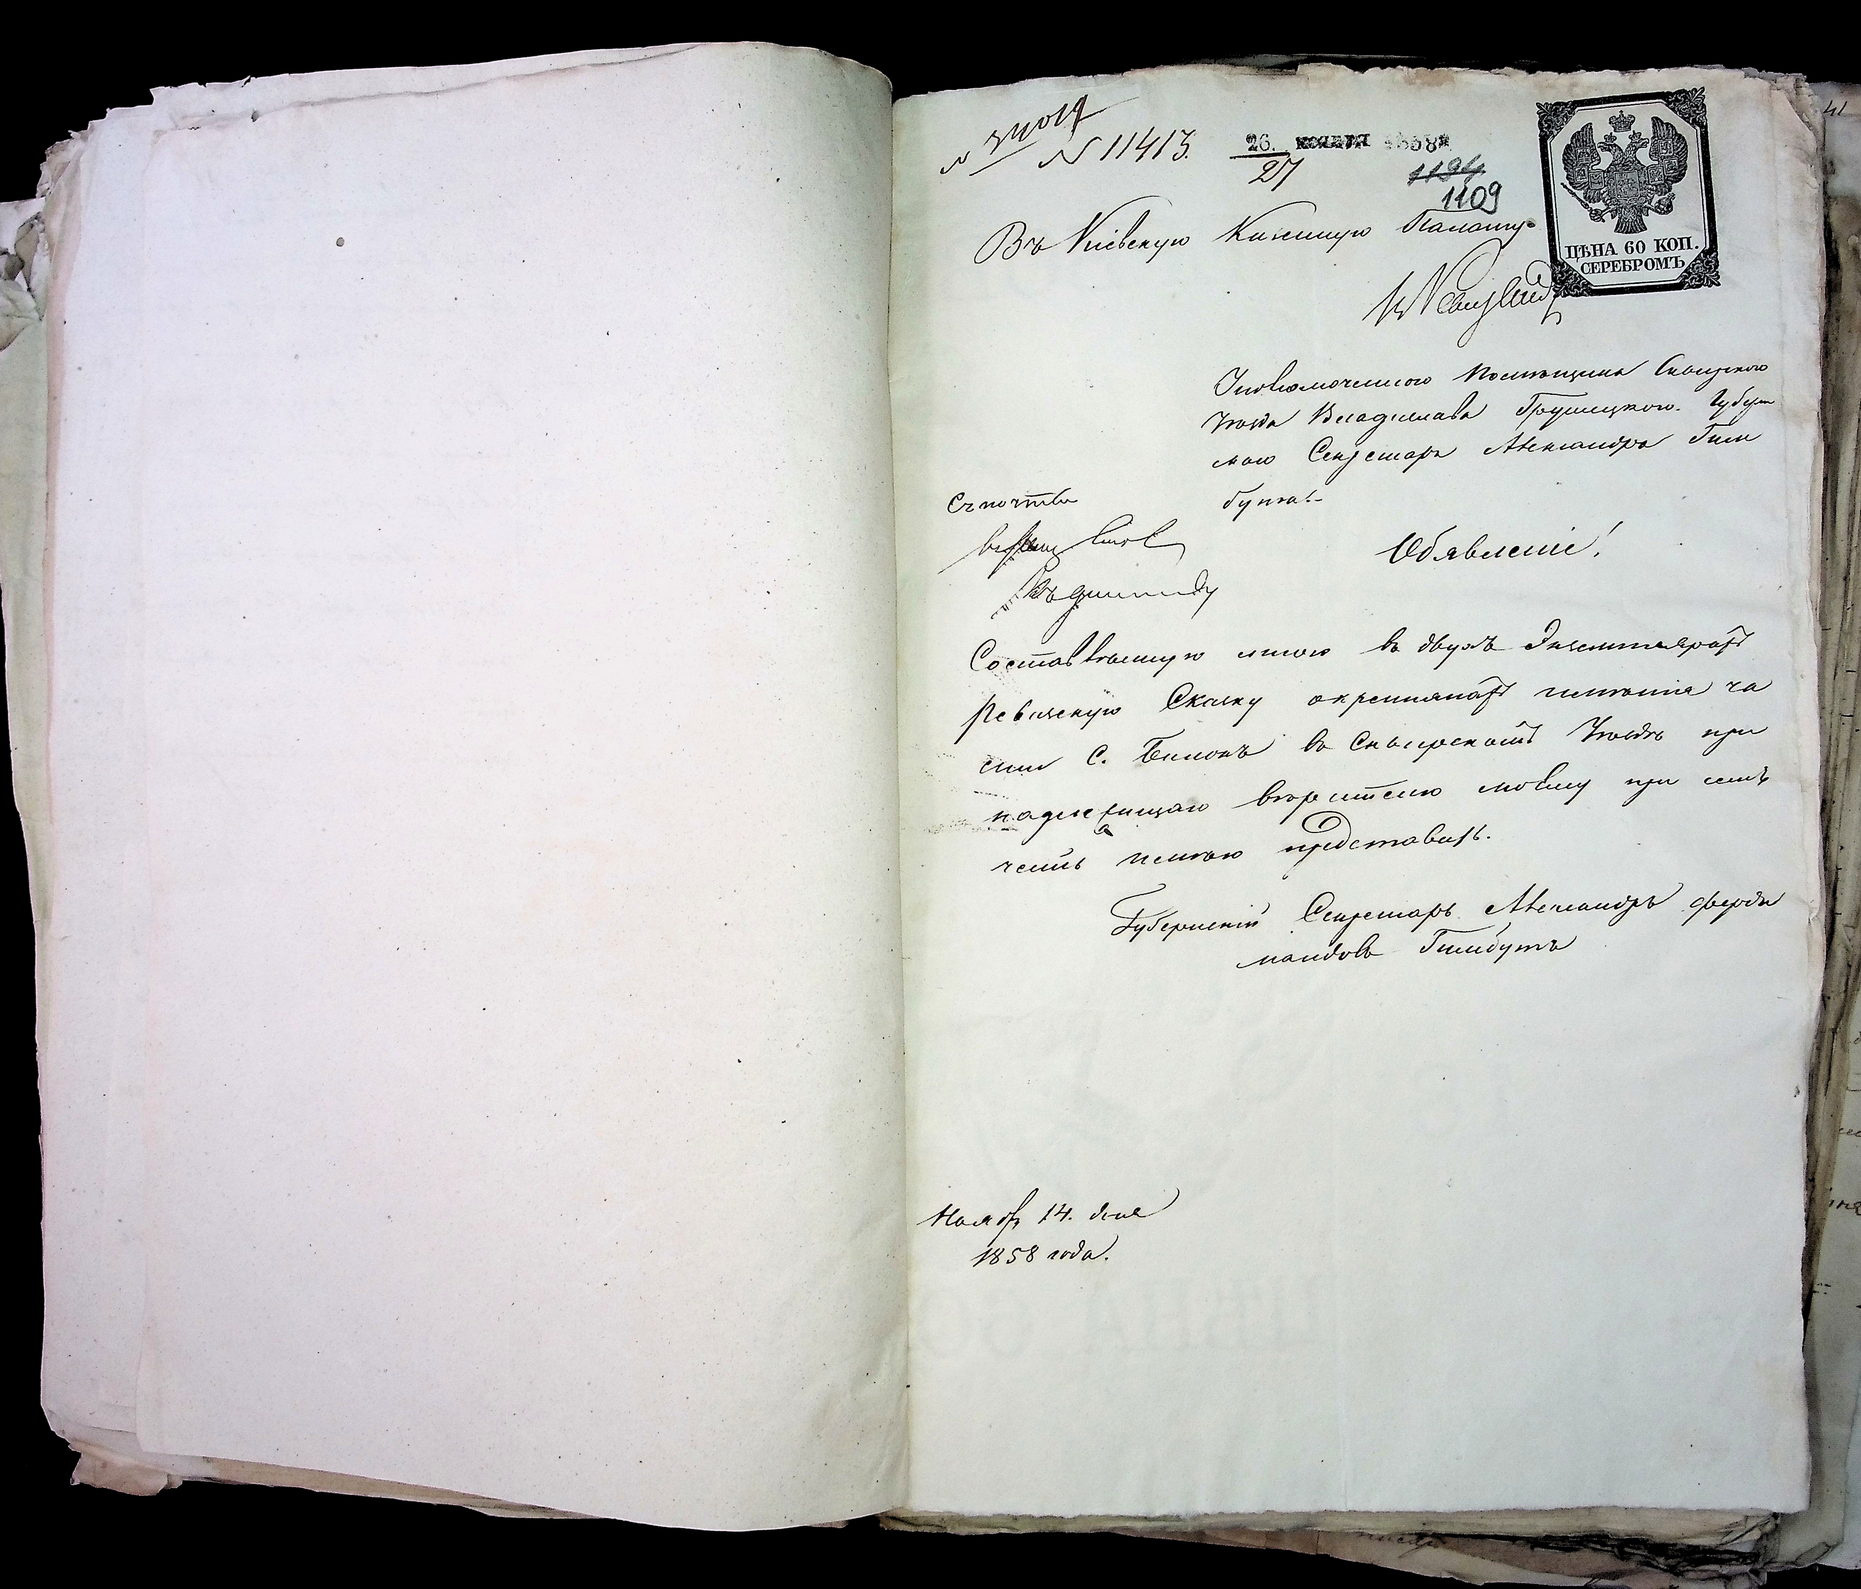 № 11413.
26. НОЯБРЯ 1858
27
1194
1109
ЦѢНА 60 КОП.
СЕРЕБРОМЪ
Въ Кіевскую Казенную Палату
Уполномоченного Помѣщика Сквирского
Уѣзда Владислава Грушецкого. Губерн
ского Секретаря Александра Гим
бута!
Съ почты
Объявленіе!
Составленную мною въ двухъ Экземплярахъ
Ревизскую Сказку о крестьянахъ имѣнія ча
сти С. въ Сквирскомъ Уѣздѣ при
надлежащаго вѣрителю моему при семъ
честь имѣю представить.
Губернскій Секретарь Александръ Ферди
нандовъ Гимбутъ
Ноября 14. дня
1858 года.